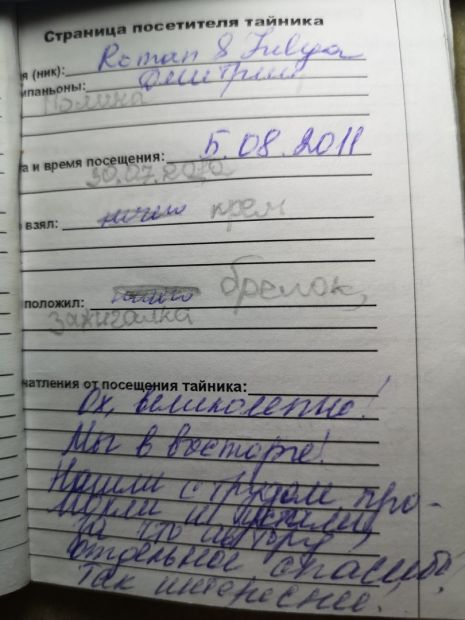 Страница посетителя тайника
я (ник): Roman & Julya
мпаньоны: Дмитрий
Полина
а и время посещения: 5.08.2011
30.07.2010
взял: ничего крем
положил: брелок,
зажигалка
чатления от посещения тайника:
Ох, великолепно!
Мы в восторге!
Нашли с трудом, про-
мокли и устали,
за что автору
отдельное спасибо!
Так интереснее!